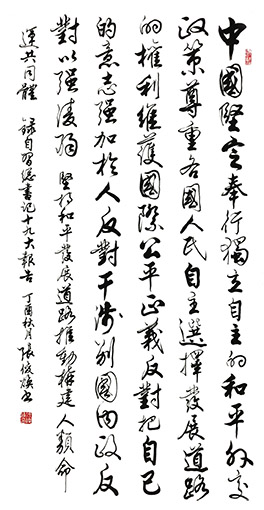 中國堅定奉行獨立自主的和平外交
政策尊重各國人民自主選擇發展道路
的權利維護國際公平正義反對把自己
的意志强加於人反對干涉别國内政反
對以强凌弱 堅持和平發展道路推動構建人類命
運共同體 録自習總書記十九大報告 丁酉秋月張俊煥書